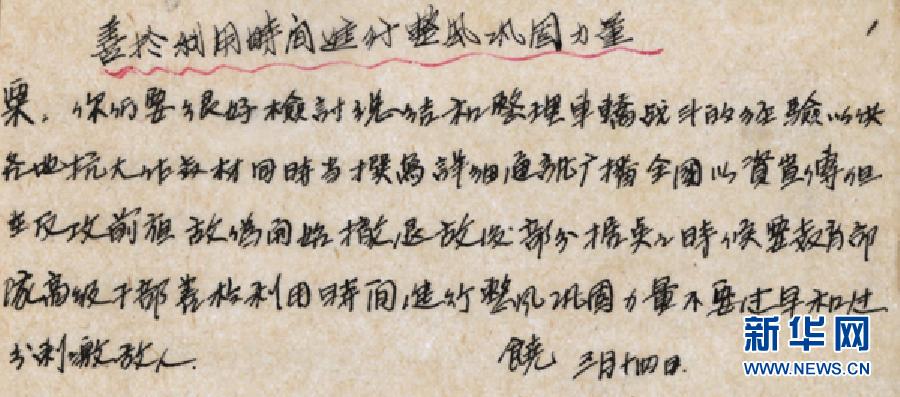 善於利用時間進行整风巩固力量
粟，你们要很好檢討总结和整理車橋战斗的经驗以供
各地抗大作教材同時当撰写詳细通訊广播全國以資宣傳但
在反攻前夜敌偽開始撤退敌後部分据点之時候要教育部
隊高级干部善於利用時間進行整风巩固力量不要过早和过
分刺激敌人.
饒 三月十四日.
新华网
WWW.NEWS.CN